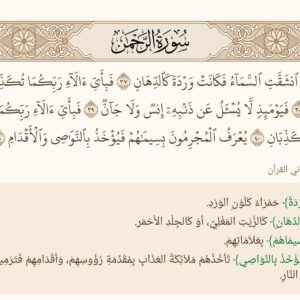 سُورَةُ الرَّحْمٰن
انشَقَّتِ السَّمَاءُ فَكَانَتْ وَرْدَةً كَالدِّهَانِ ٣٧ فَبِأَيِّ آلَاءِ رَبِّكُمَا تُكَذِّ
فَيَوْمَئِذٍ لَّا يُسْـَٔلُ عَن ذَنۢبِهِۦٓ إِنسٌ وَلَا جَانٌّ ٣٩ فَبِأَيِّ آلَاءِ رَبِّكُمَا
كَذِّبَانِ ٤٠ يُعْرَفُ الْمُجْرِمُونَ بِسِيمَاهُمْ فَيُؤْخَذُ بِالنَّوَاصِي وَالْأَقْدَامِ
ني القرآن
رْدَةً﴾ حَمْرَاءَ كَلَوْنِ الوَرْدِ.
لدِّهَانِ﴾ كَالزَّيْتِ المَغْلِيِّ، أَوْ كَالجِلْدِ الأَحْمَرِ.
سِيمَاهُمْ﴾ بِعَلَامَاتِهِمْ.
يُؤْخَذُ بِالنَّوَاصِي﴾ تَأْخُذُهُمْ مَلَائِكَةُ العَذَابِ بِمُقَدِّمَةِ رُؤُوسِهِمْ، وَأَقْدَامِهِمْ فَتَرْمِيهِ
النَّارِ.